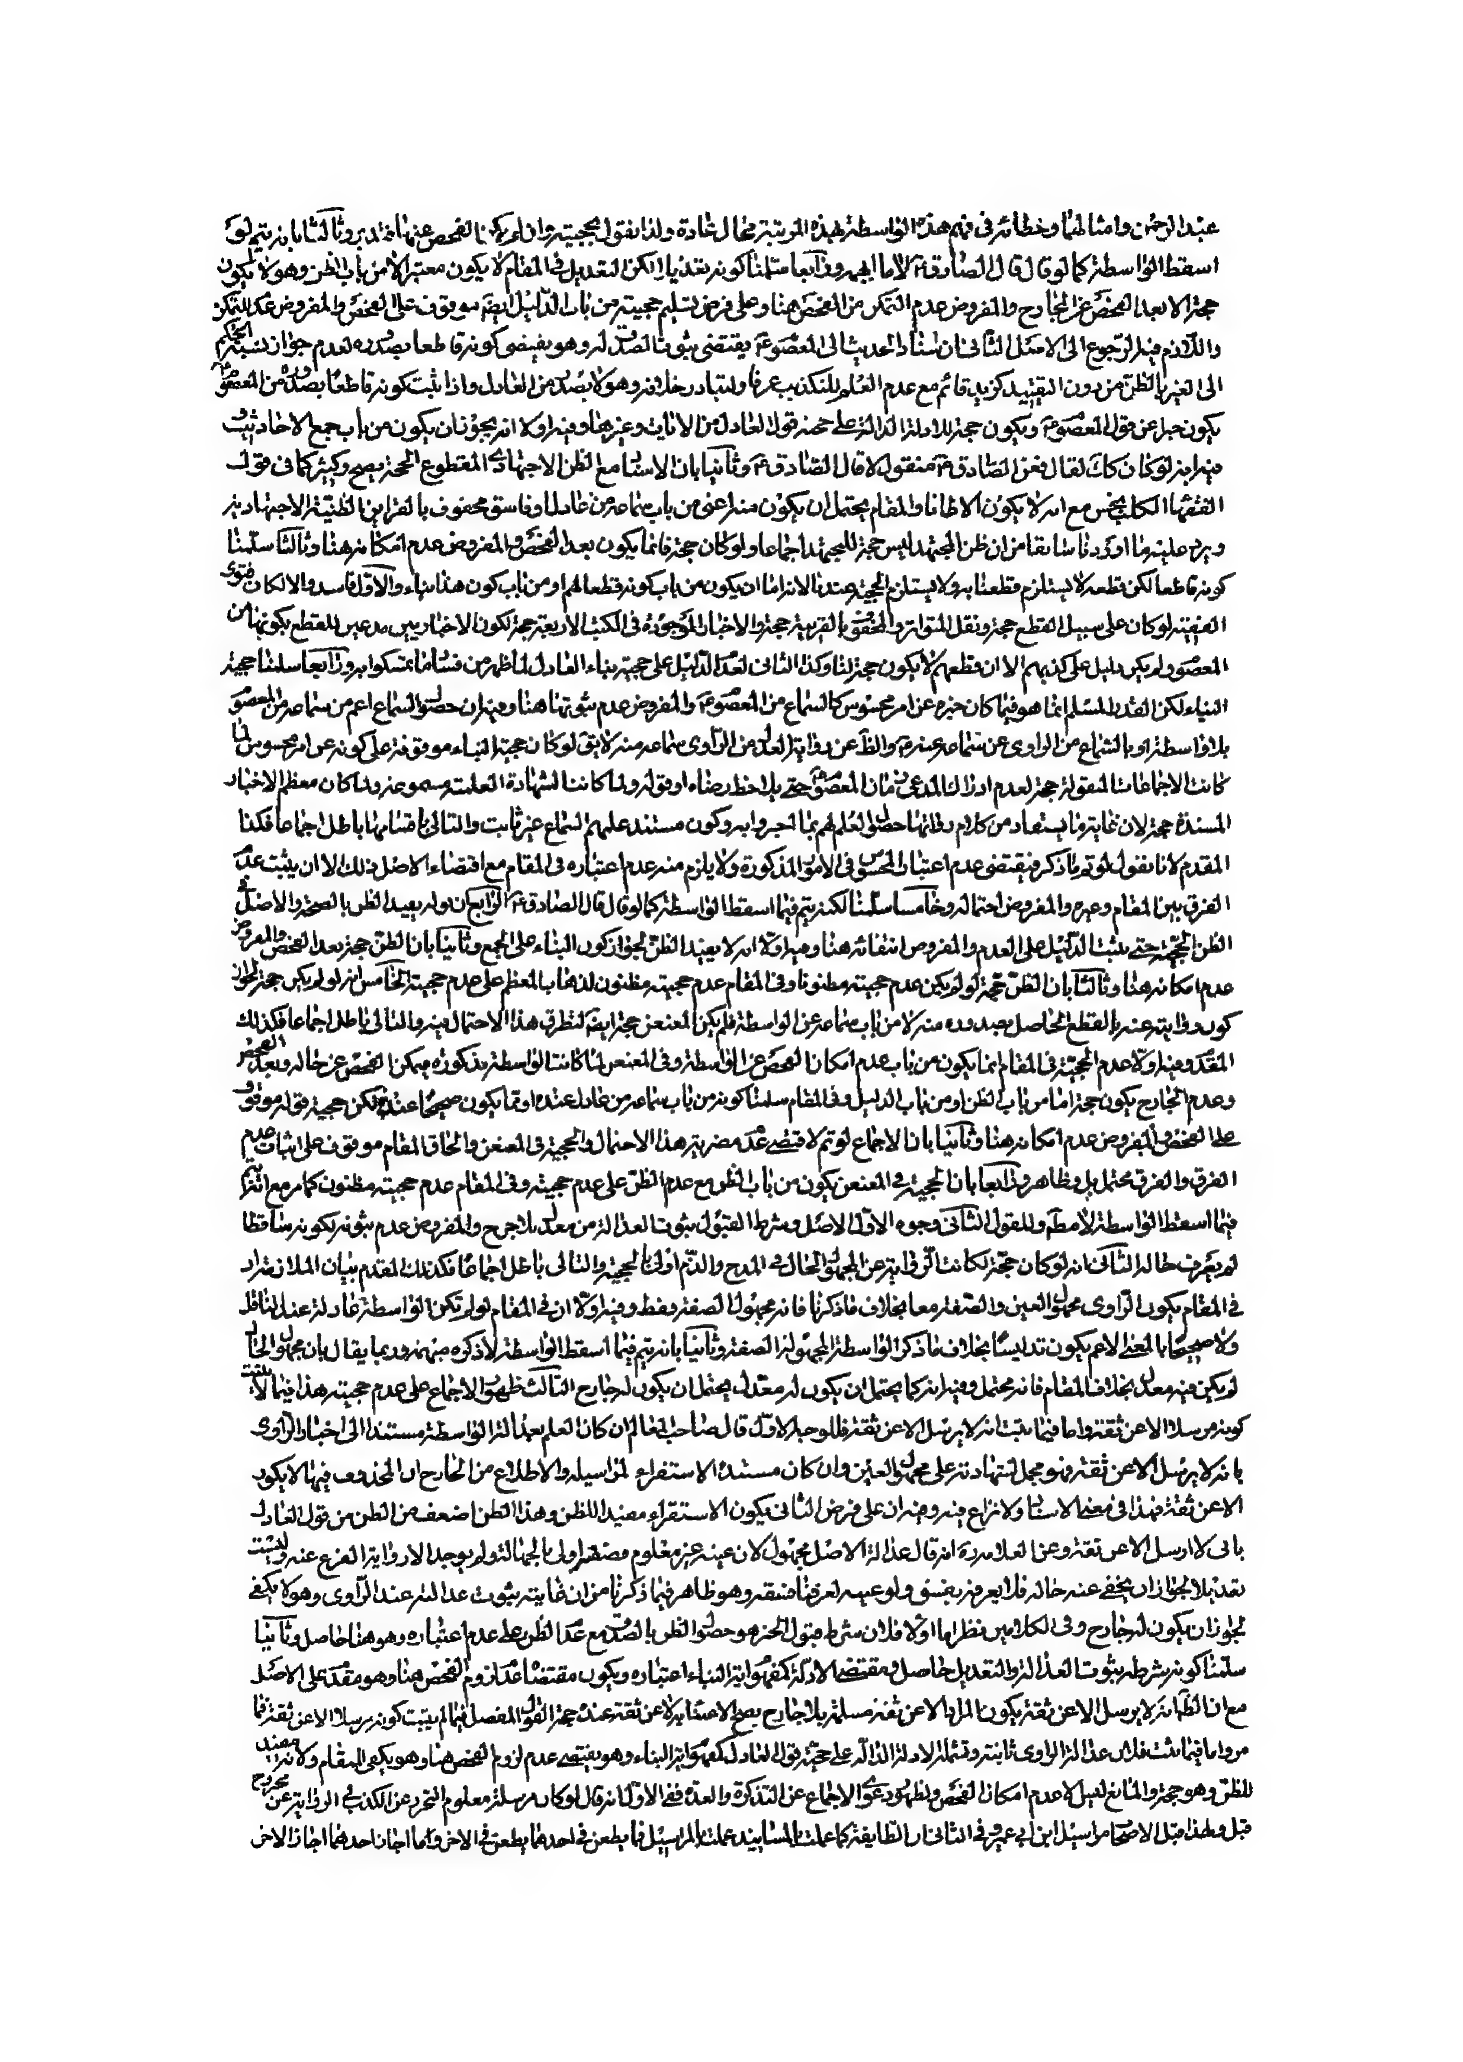 عبد الرحمن وامثالهما وخطائه في فهم هذه الواسطة بهذه المرتبة محال عادة ولذا نقول بحجيته وان لم يمكننا الفحص عنها فتدبر وثالثا بانه يتم لو
اسقط الواسطة كما لو قال قال الصادق ع لا ما ابهم ورابعا سلمنا كونه تعديلا لكن التعديل في المقام لا يكون معتبرا الا من باب الظن وهو لا يكون
حجة الا بعد الفحص عن الجارح والمفروض عدم التمكن من الفحص هنا وعلى فرض تسليم حجيته من باب الدليل ايضا موقوف على الفحص والمفروض عدم التمكن
واللازم فيه الرجوع الى الاصل الثاني ان اسناد الحديث الى المعصوم ع يقتضي ثبوت الصدق له وهو يقتضي كونه قاطعا بصدوره لعدم جواز نسبة الحكم
الى الغير بالظن من دون التقييد كزيد قائم مع عدم العلم للتكذيب عرفا ولتبادر خلافه وهو لا يصدر من العادل واذا ثبت كونه قاطعا بصدوره من المعصوم
يكون خبرا عن قول المعصوم ع ويكون حجة للادلة الدالة على حجية قول العادل من الايات وغيرها وفيه اولا انه يجوز ان يكون من باب جمع الاحاديث و
فيه انه لو كان كك لقال فعن الصادق ع منقول لا قال الصادق ع وثانيا بان الاسناد مع الظن الاجتهادي المقطوع الحجية يصح وكثير كما في قول
الفقهاء الكلب نجس مع انه لا يكون الا ظانا والمقام يحتمل ان يكون منه اعني من باب سماعه من عادل او فاسق محفوف بالقراين الظنية الاجتهادية
ويرد عليه ما اوردنا سابقا من ان ظن المجتهد ليس حجة للمجتهد اجماعا ولو كان حجة فانما يكون بعد الفحص والمفروض عدم امكانه هنا وثالثا سلمنا
كونه قاطعا لكن قطعه لا يستلزم قطعنا به ولا يستلزم الحجية عندنا لانه اما ان يكون من باب كونه قطعا لهم او من باب كون هذا بناء والاول فاسد والا لكان فتوى
الفقيه لو كان على سبيل القطع حجة ونقل المتواتر والمحفوف بالقرينة حجة والاخبار الموجودة في الكتب الاربعة حجة لكون الاخباريين مدعين للقطع بكونها من
المعصوم ولم يكن دليل على كذبهم الا ان قطعهم لا يكون حجة لنا وكذا الثاني لعدم الدليل على حجية بناء العادل لما ظهر من فساد ما تمسكوا به ورابعا سلمنا حجية
البناء لكن القدر المسلم انما هو فيما كان خبره عن امر محسوس كالسماع من المعصوم ع والمفروض عدم ثبوتها هنا وفيه ان حصول السماع اعم من سماعه من المعصوم
بلا واسطة او بالسماع من الراوي عن سماعه عنه ع والظ عن رواية العدل من الراوي سماعه منه لا يق لو كان حجية البناء موقوفة على كونه عن امر محسوس لما
كانت الاجماعات المنقولة حجة لعدم ادراك المدعي زمان المعصوم ع حتى يلاحظ رضاه او قوله ولما كانت الشهادة العلمية مسموعة ولما كان معظم الاخبار
المسندة حجة لان غاية ما يستفاد من كلام رواتها حصول العلم لهم بما اخبروا به وكون مستند علمهم السماع غير ثابت والتالي باقسامها باطل اجماعا فكذا
المقدم لانا نقول لو تم ما ذكر فيقتضي عدم اعتبار المحسوس في الامور المذكورة ولا يلزم منه عدم اعتباره في المقام مع اقتضاء الاصل ذلك الا ان يثبت عدم
الفرق بين المقام وغيره والمفروض احتماله وخامسا سلمنا لكنه يتم فيما اسقط الواسطة كما لو قال قال الصادق ع الرابع ان قوله يفيد الظن بالصحة والاصل في
الظن الحجية حتى يثبت الدليل على العدم والمفروض انتفائه هنا وفيه اولا انه لا يفيد الظن لجواز كون البناء على الجمع وثانيا بان الظن حجة بعد الفحص والمفروض
عدم امكانه هنا وثالثا بان الظن حجة لو لم يكن عدم حجيته مظنونا وفي المقام عدم حجيته مظنون لذهاب المعظم على عدم حجيته الخامس انه لو لم يكن حجة لجواز
كون روايته عنه بالقطع الحاصل بصدوره منه لا من باب سماعه عن الواسطة فلم يكن المعنعن حجة ايضا لتطرق هذا الاحتمال فيه والتالي باطل اجماعا فكذلك
المقدم وفيه اولا عدم الحجية في المقام انما يكون من باب عدم امكان الفحص عن الواسطة وفي المعنعن لما كانت الواسطة مذكورة فيمكن الفحص عن حاله وبعد الفحص
وعدم الجارح يكون حجة اما من باب الظن او من باب الدليل وفي المقام سلمنا كونه من باب سماعه من عادل عنده او مما يكون صحيحا عنده لكن حجية قوله موقوف
على الفحص والمفروض عدم امكانه هنا وثانيا بان الاجماع لو تم لاقتضى عدم مضرية هذا الاحتمال والحجية في المعنعن والحاق المقام موقوف على اثبات عدم
الفرق والفرق محتمل بل وظاهر ورابعا بان الحجية في المعنعن يكون من باب الظن مع عدم الظن على عدم حجيته وفي المقام عدم حجيته مظنون كما مر مع انه يتم
فيما اسقط الواسطة لا مطم وللقول الثاني وجوه الاول الاصل وشرط القبول ثبوت العدالة من معدل بلا جرح والمفروض عدم ثبوته بكونه ساقطا
لم يعرف حاله الثاني انه لو كان حجة لكانت الرواية عن المجهول الحال في المدح والذم اولى بالحجية والتالي باطل اجماعا فكذلك المقدم بيان الملازمة ان
في المقام يكون الراوي مجهول العين والصفة معا بخلاف ما ذكرنا فانه مجهول الصفة فقط وفيه اولا ان في المقام لو لم تكن الواسطة عادلة عند الناقل
ولا صحيحا بالمعنى الاعم يكون تدليسا بخلاف ما ذكر الواسطة المجهولة الصفة وثانيا بانه يتم فيما اسقط الواسطة لا ذكره مبهمة وربما يقال بان مجهول الحال
لم يكن فيه معدل بخلاف المقام فانه محتمل وفيه انه كما يحتمل ان يكون له معدل يحتمل ان يكون له جارح الثالث ظهور الاجماع على عدم حجيته هذا فيما لا يثبت
كونه مرسلا الا عن ثقة واما فيما ثبت انه لا يرسل الا عن ثقة فللوجه الاول قال صاحب المعالم ان كان العلم بعدالة الواسطة مستندا الى اخبار الراوي
بانه لا يرسل الا عن ثقة فهو محمل شهادته على مجهول العين وان كان مستنده الاستقراء لمراسيله والاطلاع من الخارج ان المحذوف فيها لا يكون
الا عن ثقة فهذا في معنى الاسناد ولا نزاع فيه وفيه ان على فرض الثاني يكون الاستقراء مفيدا للظن وهذا الظن اضعف من الظن من قول العادل
باني لا ارسل الا عن ثقة وعن العلامة ره انه قال عدالة الاصل مجهول لان عينه غير معلوم فصفته اولى بالجهالة ولم يوجد الا رواية الفرع عنه وليست
تعديلا لجواز ان يخفى عنه حاله فلا يعرفه بفسق ولو عينه لعرفنا فسقه وهو ظاهر فيما ذكرنا من ان غايته ثبوت عدالته عند الراوي وهو لا يكفي
لجواز ان يكون له جارح وفي الكلامين نظر اما اولا فلان شرط قبول الخبر هو حصول الظن بالصدق مع عدم الظن على عدم اعتباره وهو هنا حاصل وثانيا
سلمنا كونه شرطه ثبوت العدالة والتعديل حاصل ومقتضى الادلة كمفهوم اية النباء اعتباره ويكون مقتضاه عدم لزوم الفحص هنا وهو مقدم على الاصل
مع ان الظ انه لا يرسل الا عن ثقة يكون المراد الا عن ثقة مسلمة بلا جارح يصح الاعتماد لا عن ثقة عنده حجة القول المفصل فيما لم يثبت كونه مرسلا الا عن ثقة فما
مر واما فيما ثبت فلان عدالة الراوي ثابتة وتشمله الادلة الدالة على حجية قول العادل كمفهوم اية النباء وهو يقتضي عدم لزوم الفحص هنا وهو يكفي المقام ولانه مفيد
للظن وهو حجة والمانع ليس الا عدم امكان الفحص ولظهور دعوى الاجماع عن التذكرة والعدة ففي الاول انه قال لو كان مرسله معلوم التحرز عن الكذب في الرواية عن مجروح
قبل ولهذا قبل الاصحاب مراسيل ابن ابي عمير وفي الثاني ان الطايفة كما عملت بالمسانيد عملت بالمراسيل فما يطعن في احدهما يطعن في الاخر وما اجاز احدهما اجاز الاخر